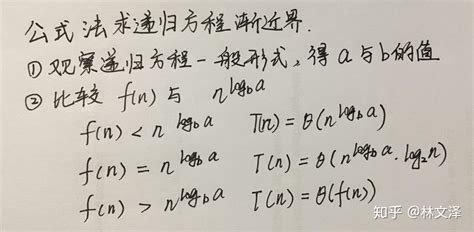 公式法求递归方程渐近界.
① 观察递归方程一般形式,得a与b的值
② 比较 f(n) 与 n^{log_b a}
f(n) < n^{log_b a} T(n) = θ(n^{log_b a})
f(n) = n^{log_b a} T(n) = θ(n^{log_b a} · log_2 n)
f(n) > n^{log_b a} T(n) = θ(f(n))
知乎 @林文泽